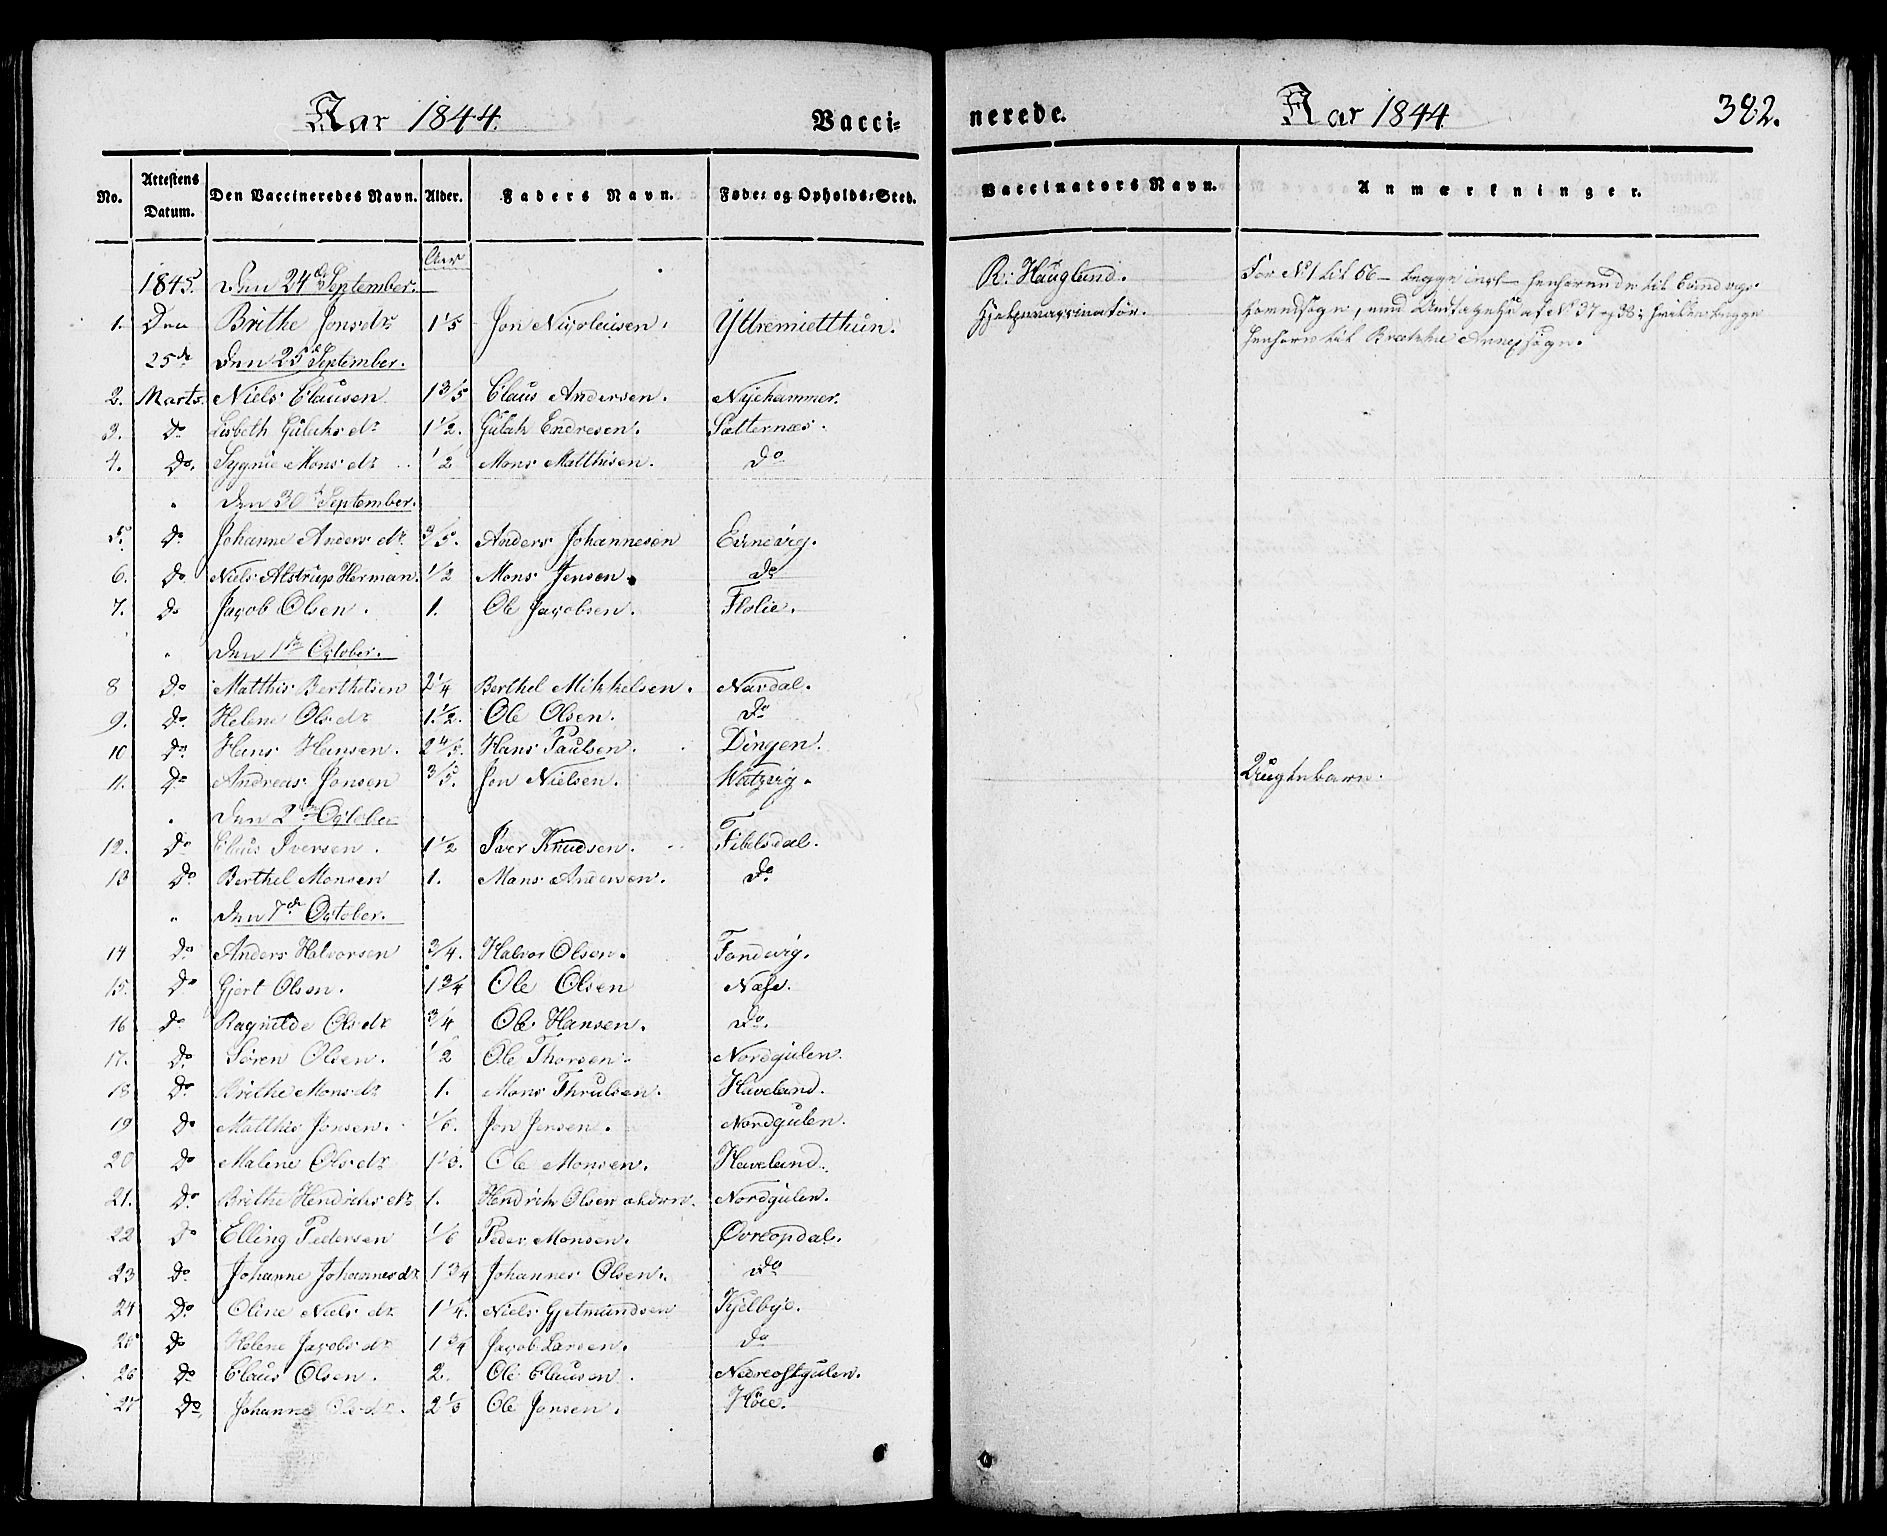 Aar 1844. Vacci-
No. Attestens Datum. Den Vaccineredes Navn. Alder. Faders Navn. Føde- og Opholds-Sted.
Aar
1845. Den 24de September.
1. Den Brithe Jonsdr 1 1/5 Jon Nicolaisen. Yttremietthun.
25de Den 25de September.
2. Marts. Niels Clausen 1 3/5 Claus Andersen. Nyehammer.
3. Do Lisbeth Gulaksdr 1 1/2. Gulak Endresen. Sætternæs.
4. Do. Sygnie Monsdr 1/2 Mons Matthisen. Do
" Den 30te September.
5. Do Johanne Andersdr. 3/5. Anders Johannesen Evinevig.
6. Do Niels Alstrup Herman. 1/2 Mons Jensen. Do
7. Do Jacob Olsen. 1. Ole Jacobsen. Flolie.
" Den 1ste October.
8 Do Matthis Berthelsen 2 1/4 Berthel Mikkelsen. Navdal.
9. Do Helene Olsdr 1 1/2. Ole Olsen. Do
10 Do Hans Hansen. 2 4/5. Hans Paulsen. Dingen.
11. Do Andreas Jonsen 3/5. Jon Nielsen. Watzvig.
" Den 2den October
12. Do Claus Iversen. 1 1/2 Iver Knudsen. Fibelsdal.
13 Do Berthel Monsen 1. Mons Andersen. Do
" Den 7de October.
14 Do Anders Halvorsen 3/4. Halvor Olsen. Fondevig.
15. Do Gjert Olsen. 1 3/4 Ole Olsen Næse.
16 Do Ragnilde Olsdr 3/4 Ole Hansen. Do.
17. Do Søren Olsen. 1/2 Ole Thorsen. Nordgulen.
18 Do Brithe Monsdr 1. Mons Thrulsen. Haveland.
19 Do Matthis Jonsen. 1/6. Jon Jensen. Nordgulen.
20 Do Malene Olsdr 1 1/3. Ole Monsen. Haveland.
21. Do Brithe Hendriksdr 1. Hendrik Olsen Nordgulen.
22 Do Elling Pedersen 1/6 Peder Monsen. Øvreopdal.
23 Do Johanne Johannesdr 1 3/4 Johannes Olsen. Do
24 Do Oline Nielsdr 1 1/4. Niels Gjetmundsen Kjelbye.
25 Do Helene Jacobsdr 1 3/4 Jacob Larsen. Do
26 Do Claus Olsen. 2. Ole Clausen. Nedreostgulen.
27 Do. Johanne Olsdr. 2 1/3 Ole Jonsen. Høie.
nerede. Aar 1844 382.
Vaccinators Navn. Anmærkninger.
R. Hauglund. For No 1 til 66 - begge incl - henhørende til Evindvigs
Hjelpevaccinatør. hovedsogn, med Undtagelse af No 37 og 38, hvilke begge
henhøre til Brække Annexsogn.
Tugtebarn.